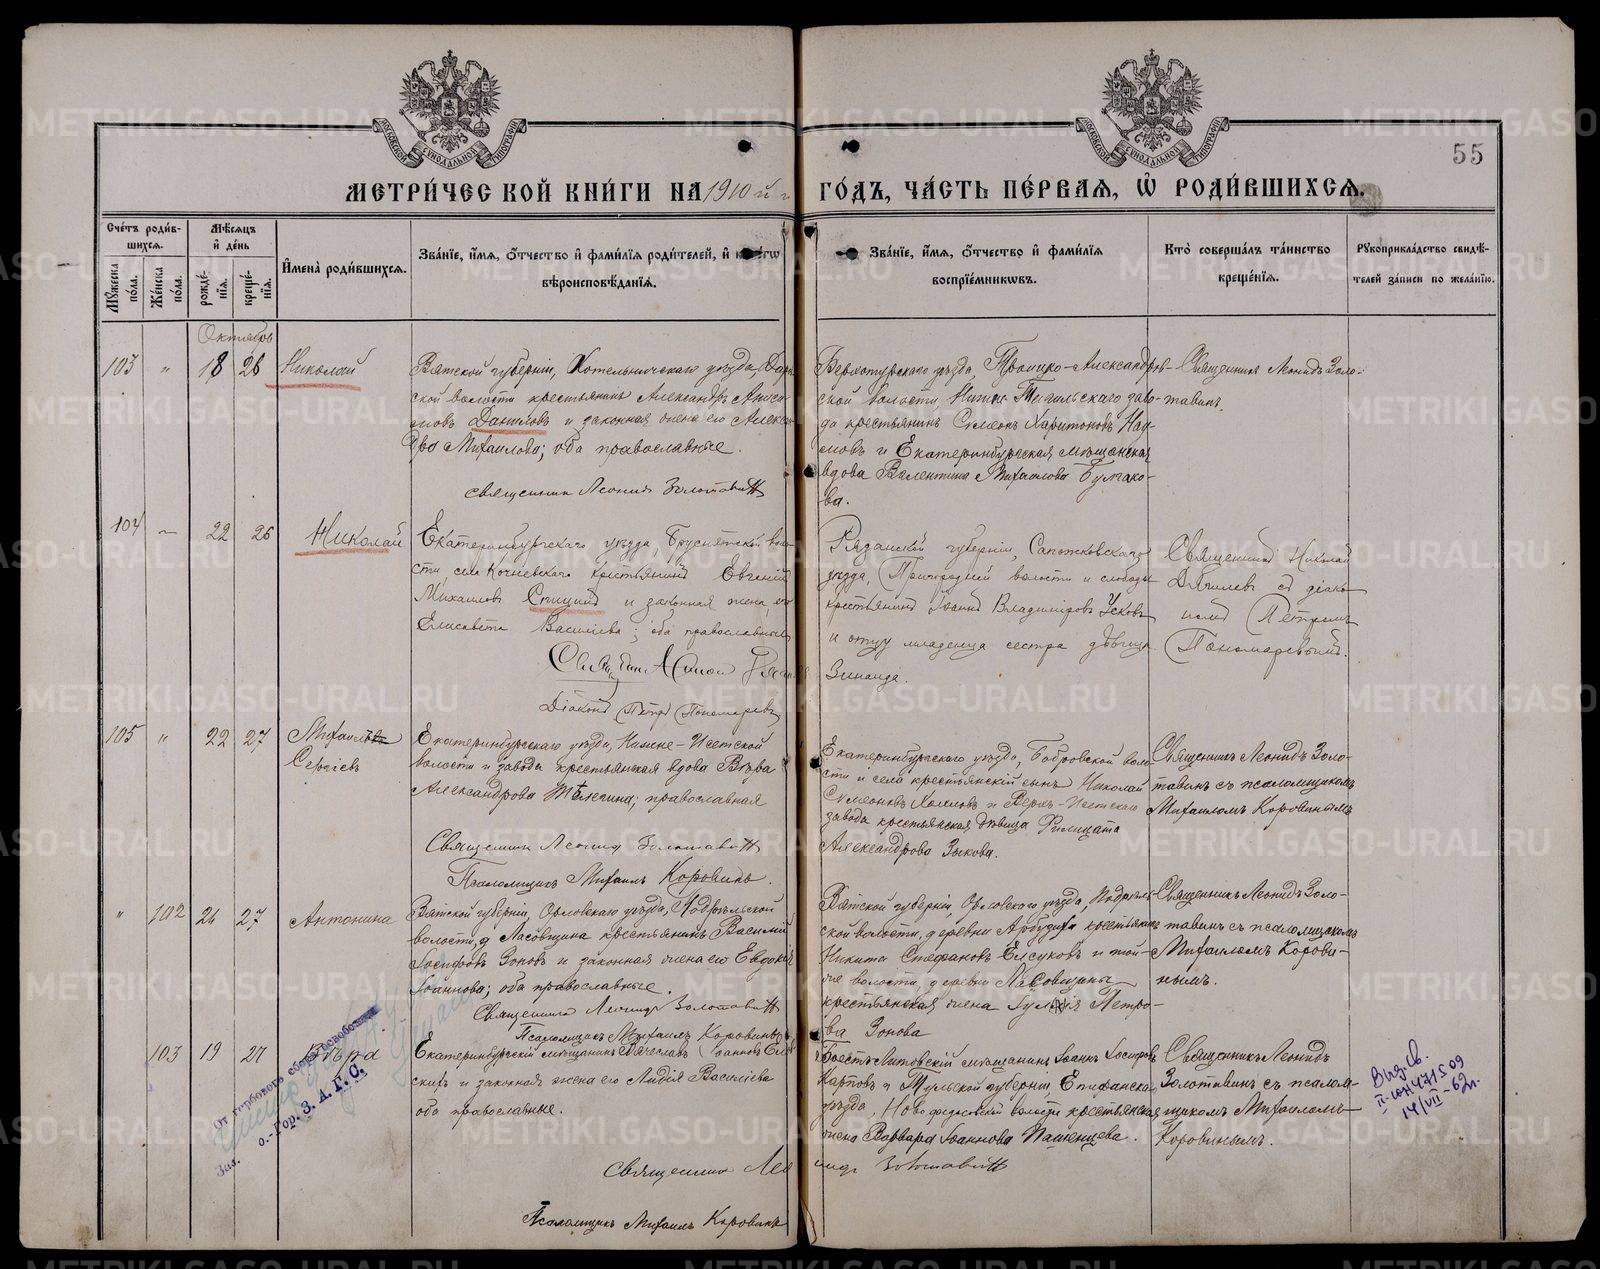 МЕТРИ́ЧЕСКОЙ КНИ́ГИ НА 1910й г
ГО́ДЪ, ЧА́СТЬ ПЕ́РВАѦ, Ѡ҆ РОДИ́ВШИХСѦ.
55
МОСКОВСКОЙ СѴНОДАЛЬНОЙ ТИПОГРАФІИ
МОСКОВСКОЙ СѴНОДАЛЬНОЙ ТИПОГРАФІИ
Сче́тъ роди́в-
шихсѧ.
Мꙋ́жеска по́ла.
Же́нска по́ла.
Мѣ́сѧцъ
и҆ де́нь
рожде́-
нїѧ.
креще́-
нїѧ.
И҆мена̀ роди́вшихсѧ.
Зва́нїе, и҆́мѧ, ѻ҆́тчество и҆ фами́лїѧ роди́телей, и҆
вѣроисповѣ́данїѧ.
Зва́нїе, и҆́мѧ, ѻ҆́тчество и҆ фами́лїѧ
воспрїе́мникѡвъ.
Кто̀ соверша́лъ та́инство
креще́нїѧ.
Рꙋкоприкла́дство свидѣ́-
телей за́писи по жела́нїю.
Октябрь
103 " 18 26 Николай
Вятской губерніи, Котельничскаго уѣзда,
ской волости крестьянинъ Александръ Аниси-
мовъ Даниловъ и законная жена его Алексан-
дра Михаилова; оба православные.
Священникъ Леонидъ Золотавинъ
Верхотурскаго уѣзда, Троицко-Александров-
ской волости, Нижне Тагильскаго заво-
да крестьянинъ Симеонъ Харитоновъ Нау-
мовъ и Екатеринбургская мѣщанская
вдова Валентина Михаилова Булгако-
ва.
Священникъ Леонидъ Золо-
тавинъ
104 — 22 26 Николай
Екатеринбургскаго уѣзда Бруснятской воло-
сти, села Кочневскаго крестьянинъ Евгеній
Михаиловъ Спицинъ и законная жена его
Елисавета Василіева; оба православные
Діаконъ Петръ Пономаревъ
Рязанской губерніи, Сапожковскаго
уѣзда, Пригородней волости и слободы
крестьянинъ Іоаннъ Владиміровъ Усковъ
и отцу младенца сестра дѣвица
Зинаида.
Священникъ Николай
Дягилевъ съ діако-
номъ Петромъ
Пономаревымъ.
105 " 22 27 Михаилъ
Сергіевъ
Екатеринбургскаго уѣзда, Камене-Исетской
волости и завода крестьянская вдова Вѣра
Александрова Телегина; православная
Священникъ Леонидъ Золотавинъ
Псаломщикъ Михаилъ Коровинъ.
Екатеринбургскаго уѣзда, Бобровской воло-
сти и села крестьянскій сынъ Николай
Симеоновъ и Верхъ-Исетскаго
завода крестьянская дѣвица Рипсимія
Александрова Зыкова.
Священникъ Леонидъ Золо-
тавинъ съ псаломщикомъ
Михаиломъ Коровинымъ
" 102 26 27 Антонина
Вятской губерніи, Орловскаго уѣзда, Подрельской
волости, д Ласовщина крестьянинъ Василій
Іосифовъ Зоновъ и законная жена его Евдокія
Іоаннова; оба православные.
Священникъ Леонидъ Золотавинъ
Псаломщикъ Михаилъ Коровинъ
Вятской губерніи, Орловскаго уѣзда, Подрель-
ской волости, деревни крестьянинъ
Никита Стефановъ Елсуковъ и той-
же волости, деревни Ласовщины
крестьянская жена Іулія Петро-
ва Зонова
Священникъ Леонидъ Золо-
тавинъ съ псаломщикомъ
Михаиломъ Корови-
нымъ.
103 19 27 Вѣра
Екатеринбургскій мѣщанинъ Вячеславъ Іоанновъ
скихъ и законная жена его Лидія Василіева
оба православные.
Священникъ Леонидъ Золотавинъ
Псаломщикъ Михаилъ Коровинъ
Брестъ-Литовскій мѣщанинъ Іоаннъ Іосифовъ
Карповъ и Тульской губерніи, Епифанскаго
уѣзда, волости крестьянская
жена Варвара Іоаннова Пашенцева.
Священникъ Леонидъ
Золотавинъ съ псалом-
щикомъ Михаиломъ
Коровинымъ.
От гербового сбора освобожден.
о.-Гор. З. А. Г. С.
Зав.
Выд. св.
II-ЮН 471509
14/VII-62г.
METRIKI.GASO-URAL.RU